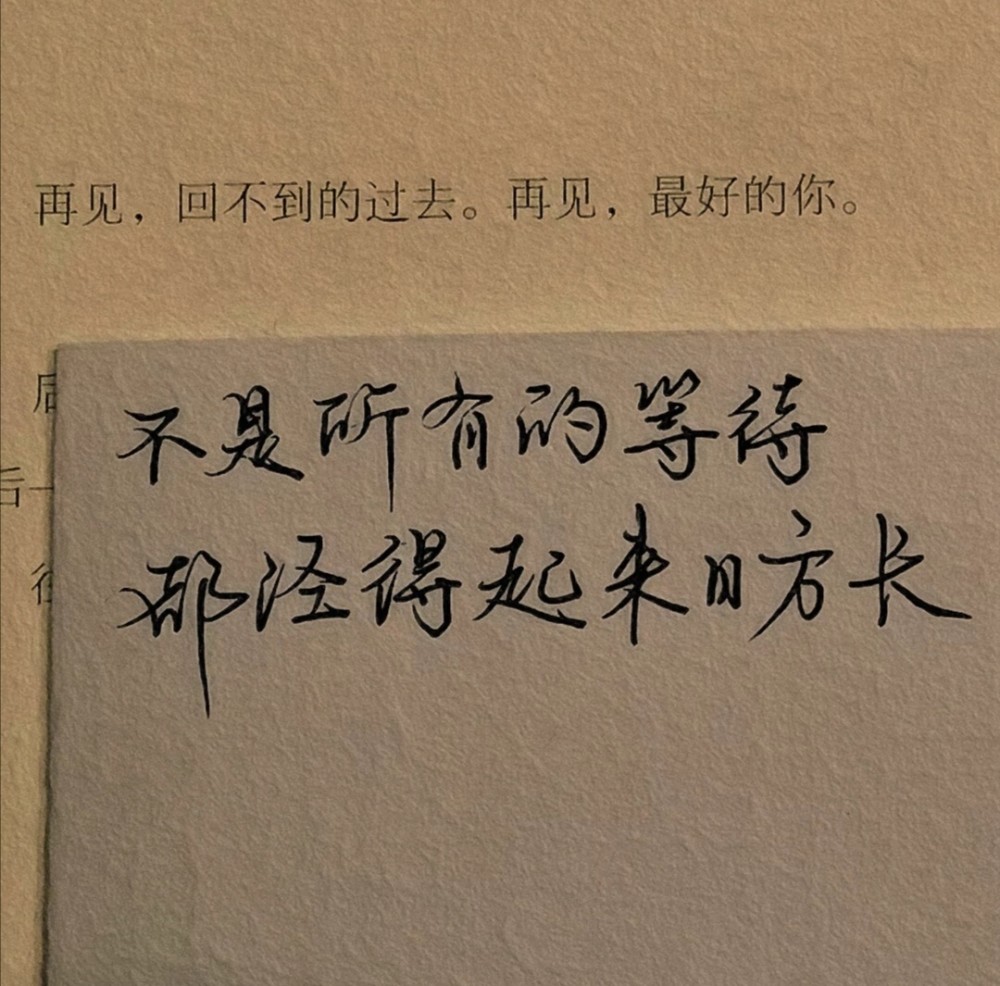 再见，回不到的过去。再见，最好的你。
后一
不是所有的等待
都泾得起来日方长